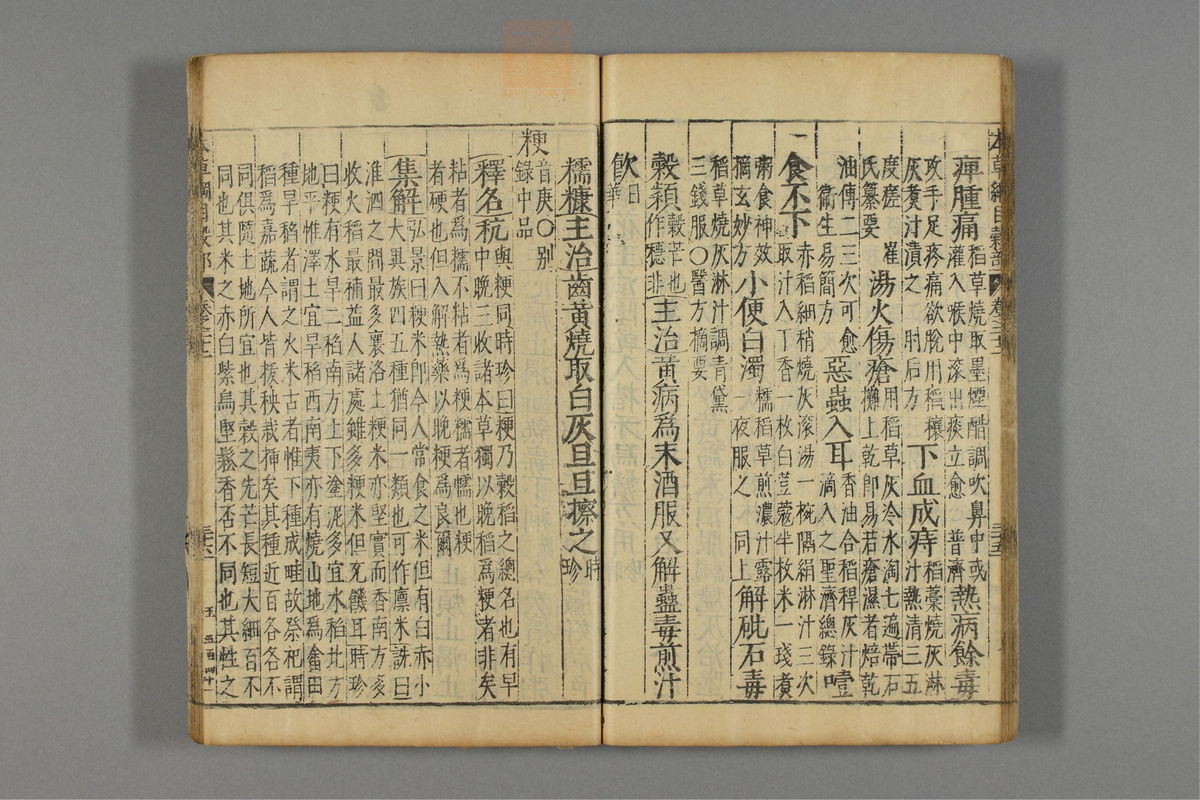 本草綱目穀部 卷二十二 三十五
痺腫痛 稻草燒取墨煙醋調吹鼻中或
灌入喉中滾出痰立愈 普濟 熱病餘毒
攻手足疼痛欲脫用稻穰
灰煑汁漬之 肘后方 下血成痔 稻藁燒灰淋
汁熱漬三五
度瘥 崔
氏纂要 湯火傷瘡 用稻草灰冷水淘七遍帶
攤上乾即易若瘡濕者焙乾
油傅二三次可愈
衛生易簡方 惡蟲入耳 香油合稻稈灰汁
滴入之 聖濟總錄 噎
食不下 赤稻細稍燒灰滾湯一椀隔絹淋汁三次
取汁入丁香一枚白荳蔻半枚米一琖煑
粥食神效
摘玄妙方 小便白濁 糯稻草煎濃汁露
一夜服之 同上 解砒石毒
稻草燒灰淋汁調青黛
三錢服○醫方摘要
穀穎 穀芒也
作穩非 主治黃病爲末酒服又解蠱毒煎汁
飲 日
華
糯糠主治齒黃燒取白灰旦旦擦之 時
珍
粳 音庚○別
錄中品
釋名秔 與粳同時珍曰粳乃穀稻之總名也有早
中晚三收諸本草獨以晚稻爲粳者非矣
粘者爲糯不粘者爲粳糯者懦也粳
者硬也但入解熱藥以晚粳爲良爾
集解 弘景曰粳米即今人常食之米但有白赤小
大異族四五種猶同一類也可作廩米詵曰
淮泗之間最多襄洛土粳米亦堅實而香南方多
收火稻最補益人諸處雖多粳米但充饑耳時珍
曰粳有水旱二稻南方土下塗泥多宜水稻北方
地平惟澤土宜旱稻西南夷亦有燒山地爲畬田
種旱稻者謂之火米古者惟下種成畦故祭祀謂
稻爲嘉蔬今人皆拔秧栽揷矣其種近百各各不
同俱隨土地所宜也其穀之先芒長短大細百不
同也其米之赤白紫烏堅鬆香否不同也其性之
本草綱目穀部 卷二十二 三十六